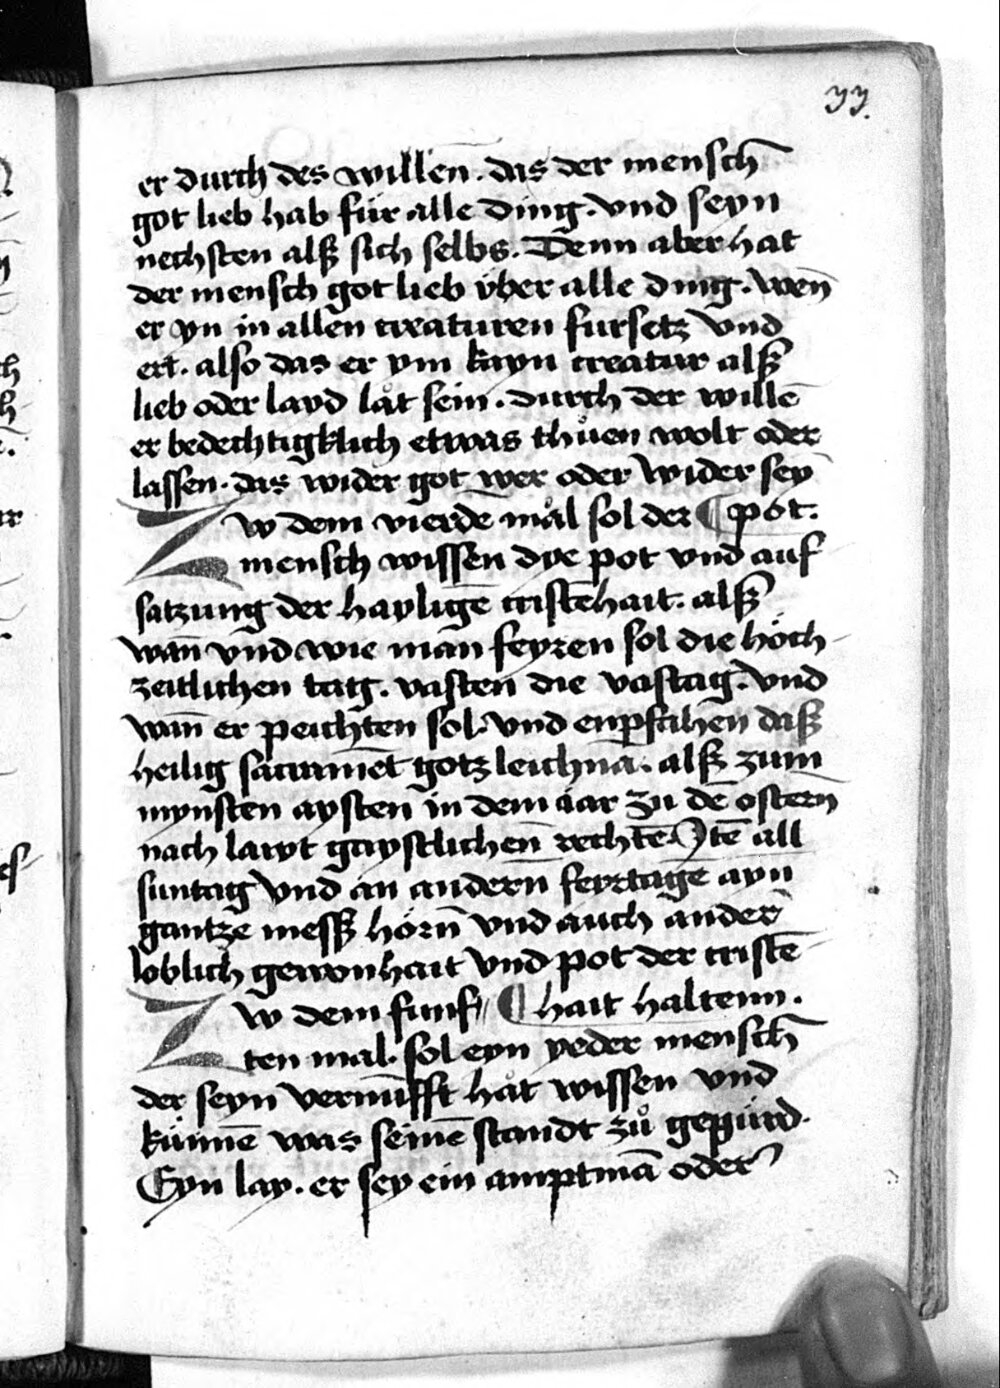 33.
er durch des willen. das der mensch
got lieb hab für alle ding. vnd seyn
nechsten alß sich selbs. Denn aber hat
der mensch got lieb vber alle ding. wen̄
er yn in allen creaturen fursetz vnd
ert. also das er ym kayn creatur alß
lieb oder layd låt sein. durch der wille̅
er bedechtigklich etwas thůen wolt oder
lassen. das wider got wer oder wider sey̅
Zw dem vierde̅ mål sol der ¶ pot.
mensch wissen dye pot vnd auf
satzung der haylige̅ criste̅hait. alß
wan̅ vnd wie man feyren sol die höch
zeitlichen tag. vasten die vastag. vnd
wan̅ er peichten sol. vnd enpfahen daß
heilig sacrame̅t gotz leichna̅. alß zum
mynsten aysten in dem iar zu de̅ ostern̅
nach lawt gaystlichen̅ rechte̅. Ite̅ all
suntag vnd an andern̅ feyrtage̅ ayn
gantze messß hörn̅ vnd auch ander
loblich gewonhait vnd pot der criste̅
Zw dem funf ¶ hait haltenn.
ten mal. sol eyn yeder mensch
der seyn vernu̅fft håt wissen vnd
künne̅ was seine̅ standt zů gepürd.
Eyn lay. er sey ein amptma̅ oder